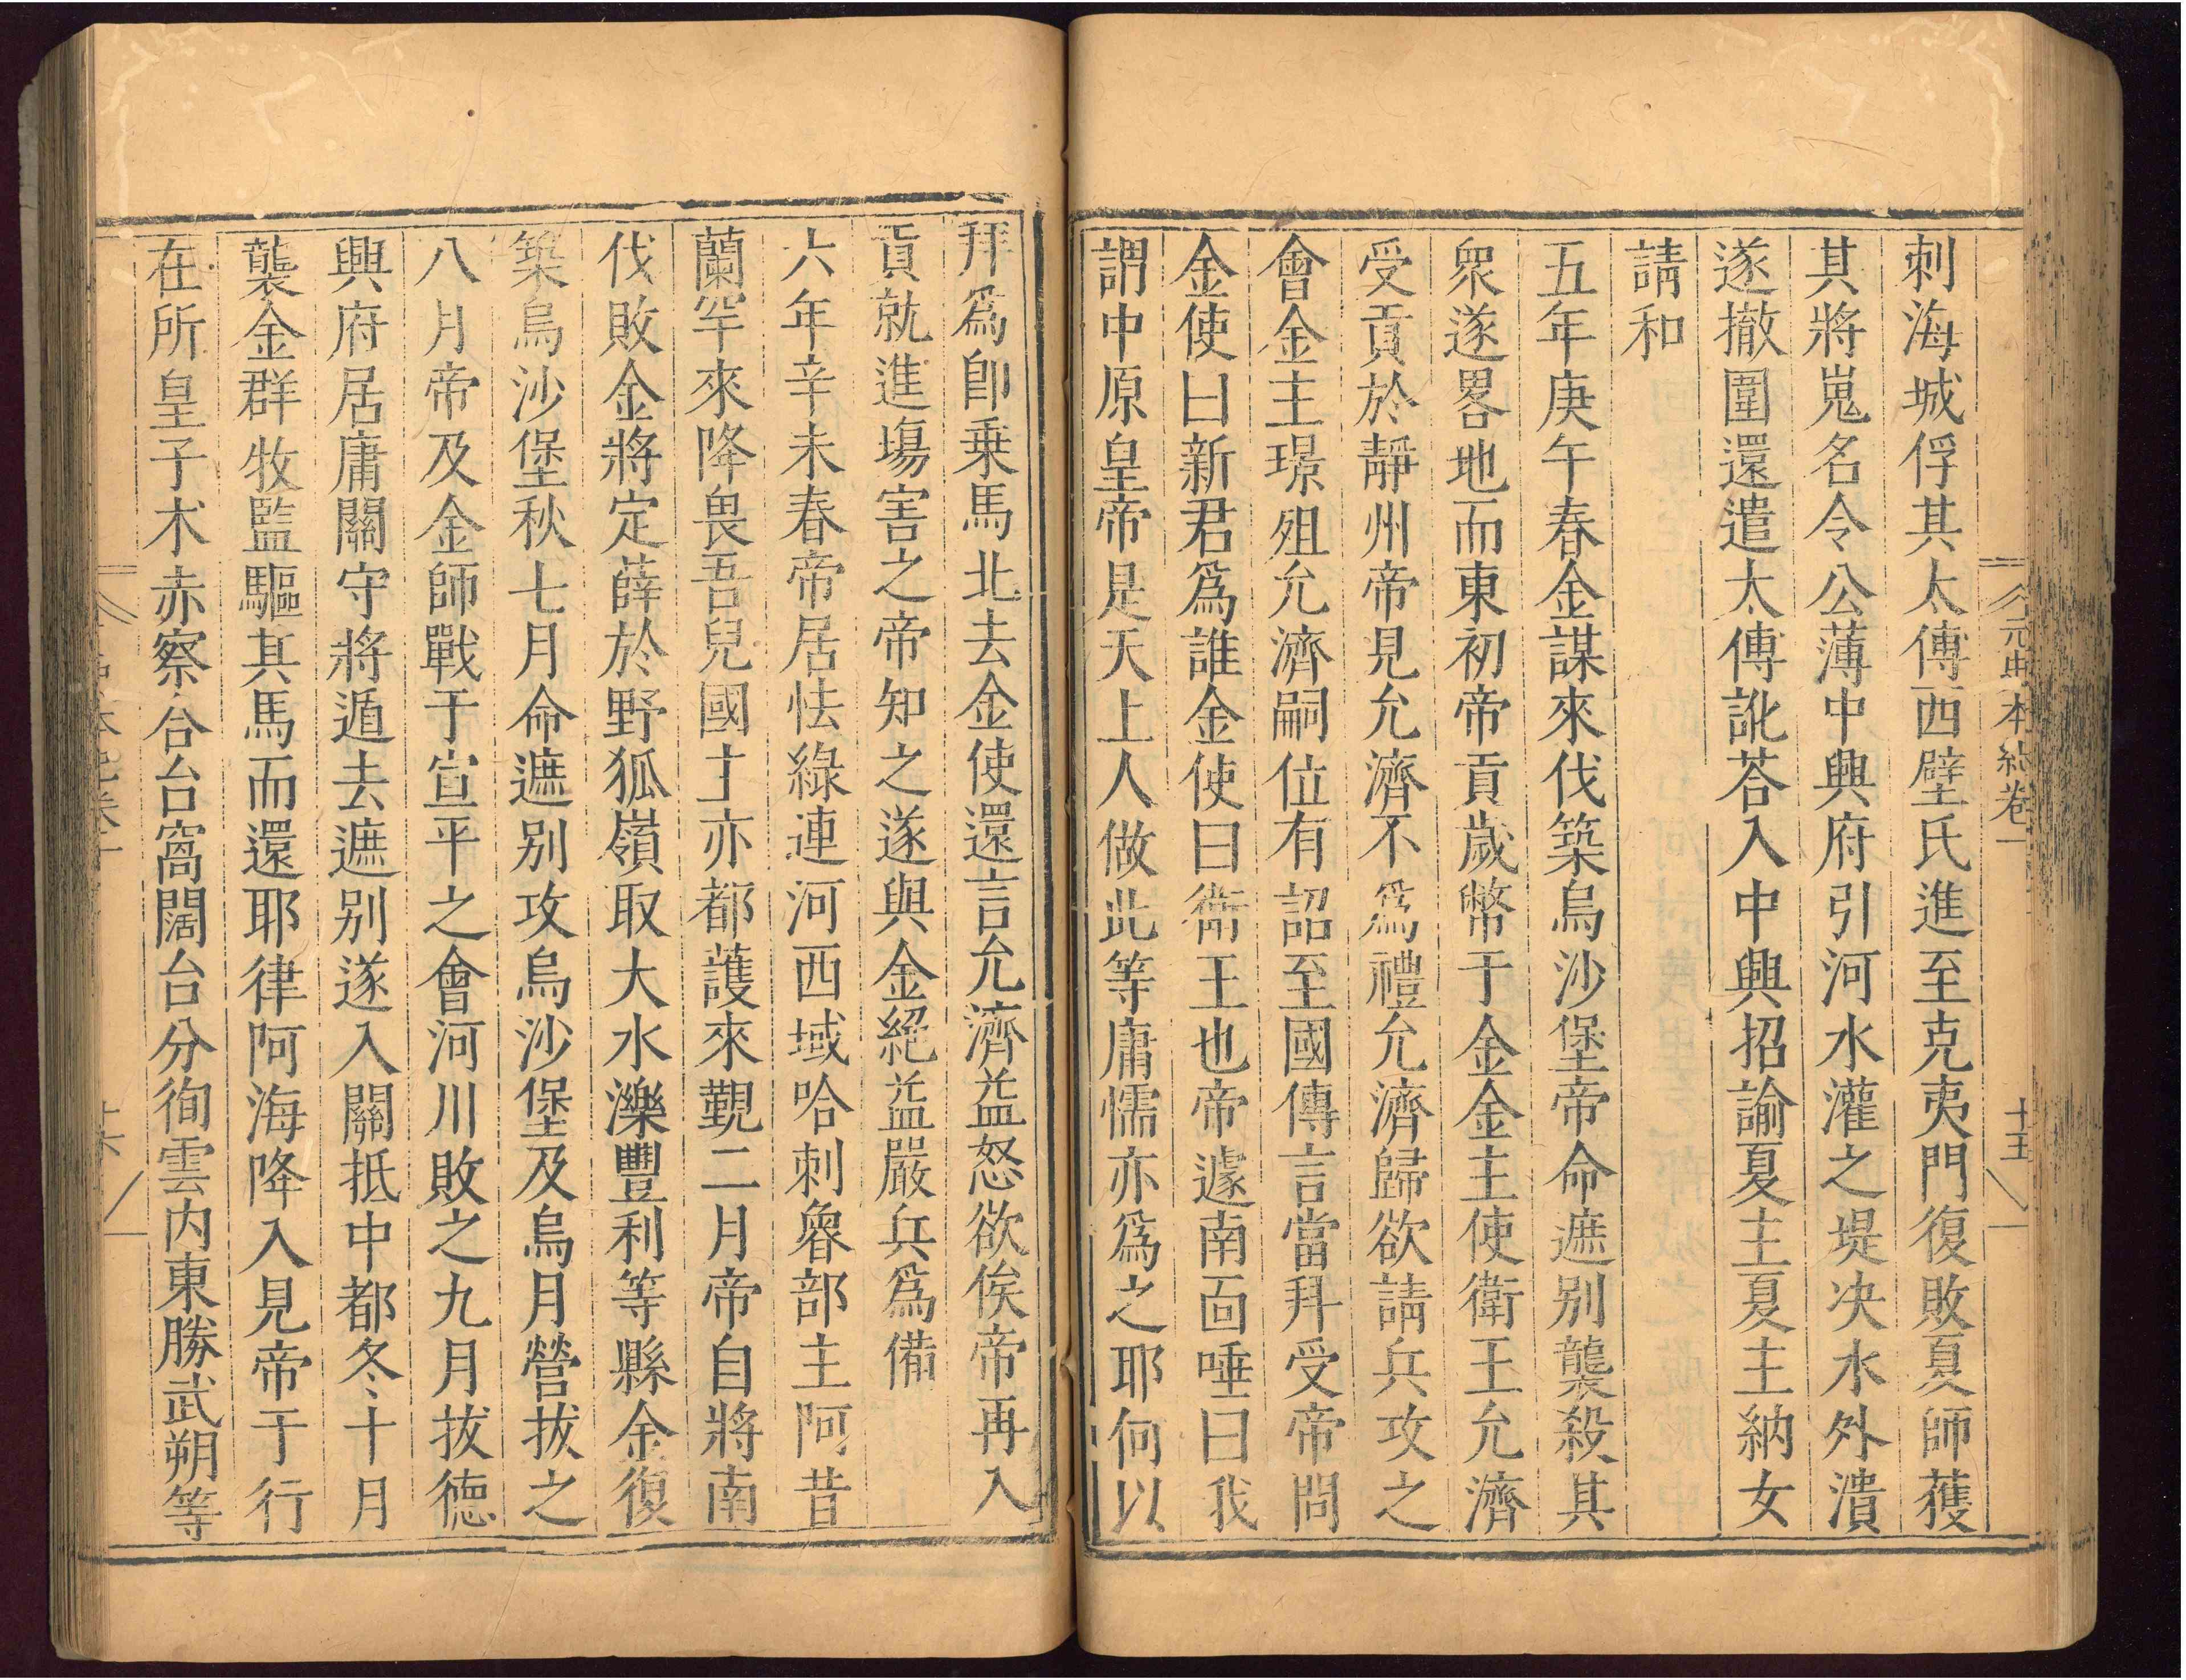 元史本紀卷一 十五
刺海城俘其太傅西壁氏進至克夷門復敗夏師獲
其將嵬名令公薄中興府引河水灌之堤决水外潰
遂撤圍還遣太傅訛荅入中興招諭夏主夏主納女
請和
五年庚午春金謀來伐築烏沙堡帝命遮别襲殺其
衆遂畧地而東初帝貢歲幣于金金主使衛王允濟
受貢於靜州帝見允濟不爲禮允濟歸欲請兵攻之
會金主璟殂允濟嗣位有詔至國傳言當拜受帝問
金使曰新君爲誰金使曰衛王也帝遽南面唾曰我
謂中原皇帝是天上人做此等庸懦亦爲之耶何以
拜爲卽乗馬北去金使還言允濟益怒欲俟帝再入
貢就進塲害之帝知之遂與金絕益嚴兵爲備
六年辛未春帝居怯綠連河西域哈刺魯部主阿昔
蘭罕來降畏吾兒國主亦都護來覲二月帝自將南
伐敗金將定薛於野狐嶺取大水濼豐利等縣金復
築烏沙堡秋七月命遮别攻烏沙堡及烏月營拔之
八月帝及金師戰于宣平之會河川敗之九月拔德
興府居庸關守將遁去遮别遂入關抵中都冬十月
襲金群牧監驅其馬而還耶律阿海降入見帝于行
在所皇子术赤察合台窩闊台分徇雲内東勝武朔等